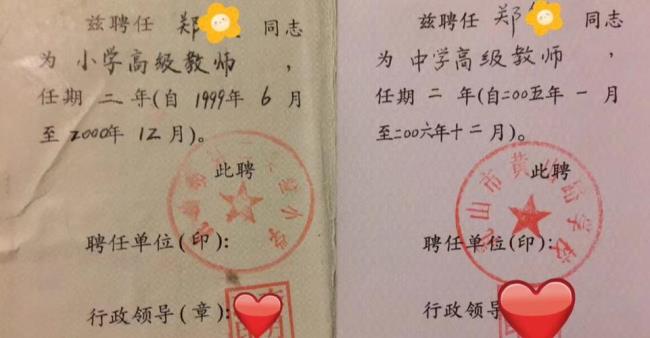 兹聘任 郑 同志
为 小学高级教师 ,
任期 二 年(自 1999年 6 月
至 2000年 12 月)。
此聘
聘任单位(印):
行政领导(章):
兹聘任 郑 同志
为 中学高级教师 ,
任期 二 年(自二00五年 一 月
至二00六年十二月)。
此聘
聘任单位(印):
行政领导